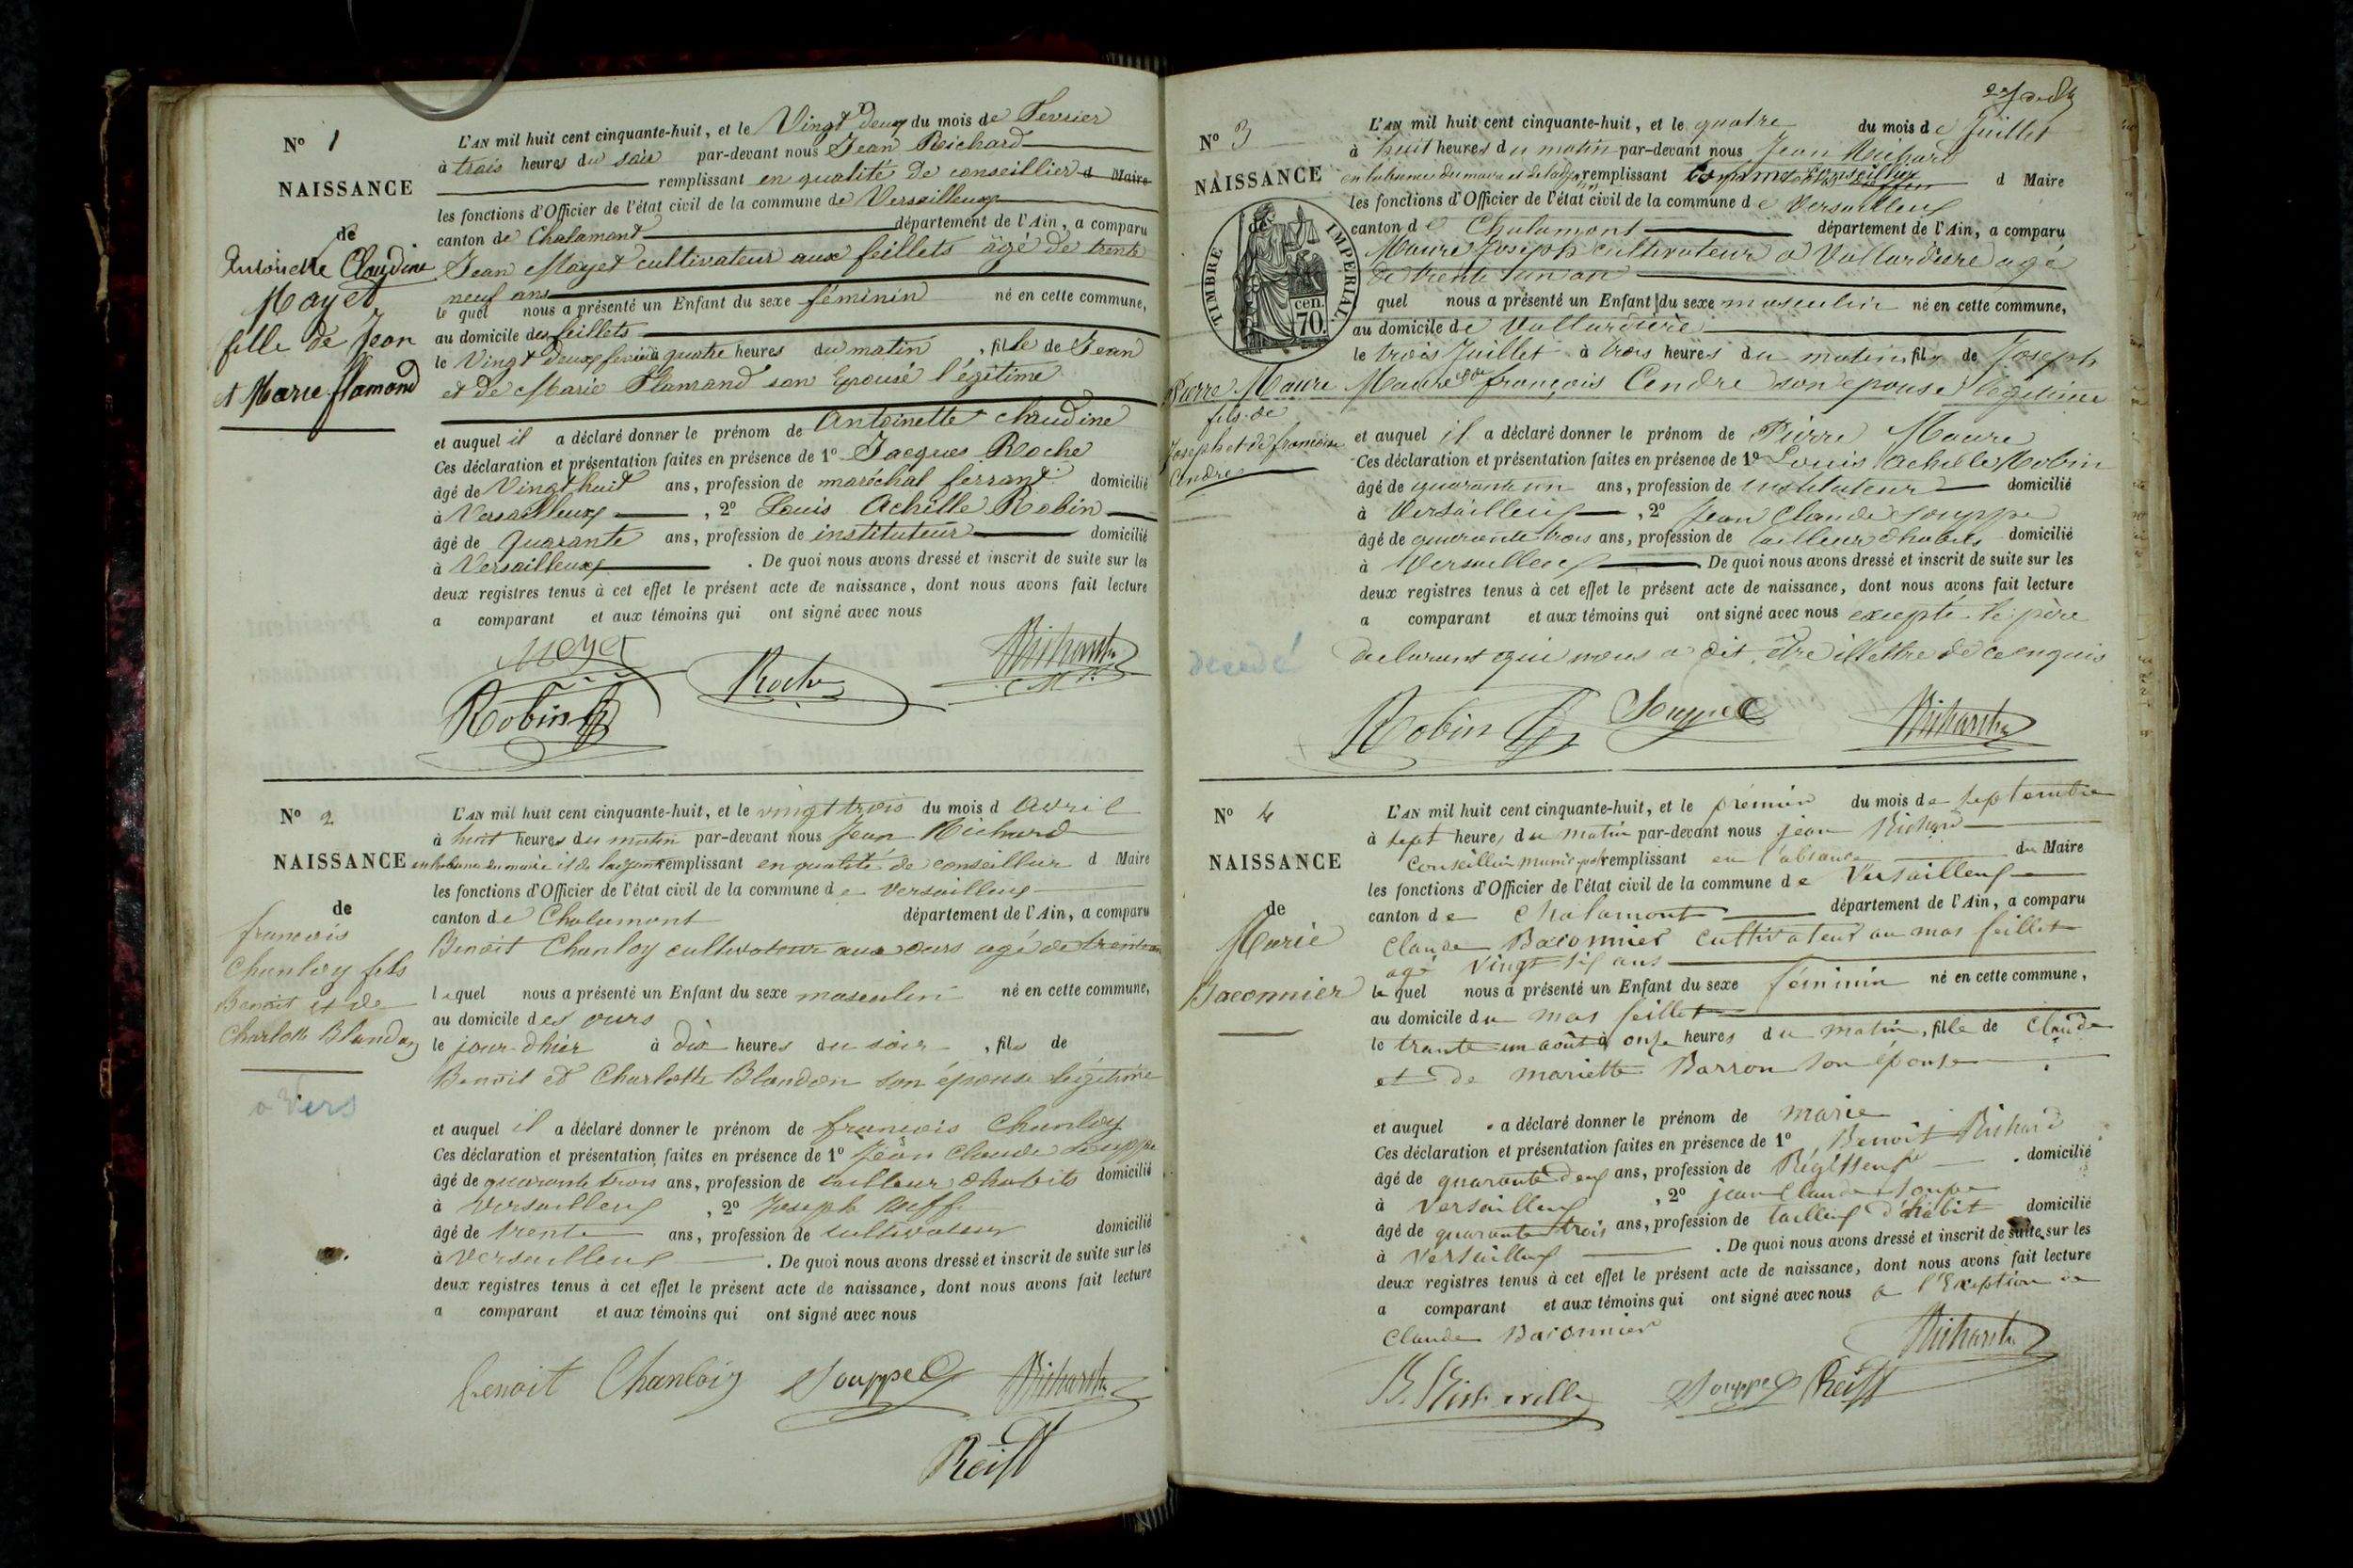 N° 1
NAISSANCE
de
Antoinette Claudine
Mayet
fille de Jean
et Marie flamand
L'AN mil huit cent cinquante-huit, et le Vingt Deux du mois de Fevrier
à trois heures du soir par-devant nous Jean Reichard
remplissant en qualité de conseillier d Maire
les fonctions d'Officier de l'état civil de la commune de Versailleux
canton de Chalamont département de l'Ain, a comparu
Jean Mayet cultivateur aux feillets âgé de trente
neuf ans
le quel nous a présenté un Enfant du sexe féminin né en cette commune,
au domicile des feillets
le Vingt Deux fevrier à quatre heures du matin , fille de Jean
et de Marie Flamand son Epouse légitime
et auquel il a déclaré donner le prénom de Antoinette Claudine
Ces déclaration et présentation faites en présence de 1° Jacques Roche
âgé de Vingt huit ans, profession de maréchal ferrant domicilié
à Versailleux , 2° Louis Achille Robin
âgé de Quarante ans, profession de instituteur domicilié
à Versailleux . De quoi nous avons dressé et inscrit de suite sur les
deux registres tenus à cet effet le présent acte de naissance, dont nous avons fait lecture
a comparant et aux témoins qui ont signé avec nous
Mayet
Robin
Roche
Richard
N° 2
NAISSANCE
de
francois
Chanloy fils
Benoit et de
Charlotte Blandon
a Vers
L'AN mil huit cent cinquante-huit, et le vingt trois du mois d Avril
à huit heures du matin par-devant nous Jean Richard
en l'absence du maire et de l'adjoint remplissant en qualité de conseillier d Maire
les fonctions d'Officier de l'état civil de la commune de Versailleux
canton de Chalamont département de l'Ain, a comparu
Benoit Chanloy cultivateur aux ours agé de trente ans
lequel nous a présenté un Enfant du sexe masculin né en cette commune,
au domicile des ours
le jour d'hier à dix heures du soir , fils de
Benoit et Charlotte Blandon son épouse légitime
et auquel il a déclaré donner le prénom de francois Chanloy
Ces déclaration et présentation faites en présence de 1° Jean Claude Souppe
âgé de quarante trois ans, profession de tailleur d'habits domicilié
à Versailleux , 2° Joseph Reiff
âgé de trente ans, profession de cultivateur domicilié
à Versailleux . De quoi nous avons dressé et inscrit de suite sur les
deux registres tenus à cet effet le présent acte de naissance, dont nous avons fait lecture
a comparant et aux témoins qui ont signé avec nous
benoit Chanloiy Souppe Richard
Reiff
N° 3
NAISSANCE
de
TIMBRE IMPERIAL
cen.
70.
Pierre Maure
fils de
Joseph et de francoise
Cendre
decedé
L'AN mil huit cent cinquante-huit, et le quatre du mois de Juillet
à huit heures du matin par-devant nous Jean Richard
en l'absence du maire et de l'adjoint remplissant conseillier d Maire
les fonctions d'Officier de l'état civil de la commune de Versailleux
canton de Chalamont département de l'Ain, a comparu
Maure Joseph cultivateur a Vallardiere agé
de trente un an
quel nous a présenté un Enfant du sexe masculin né en cette commune,
au domicile de Vallardiere
le trois Juillet à trois heures du matin, fils de Joseph
Maure et de françois Cendre son epouse légitime
et auquel il a déclaré donner le prénom de Pierre Maure
Ces déclaration et présentation faites en présence de 1° Louis Achille Robin
âgé de quarante un ans, profession de instituteur domicilié
à Versailleux , 2° Jean Claude Souppe
âgé de quarante trois ans, profession de tailleur d'habits domicilié
à Versailleux De quoi nous avons dressé et inscrit de suite sur les
deux registres tenus à cet effet le présent acte de naissance, dont nous avons fait lecture
a comparant et aux témoins qui ont signé avec nous excepté le père
declarant qui nous a dit être illettré de ce enquis
Robin Souppe Richard
N° 4
NAISSANCE
de
Marie
Baconnier
L'AN mil huit cent cinquante-huit, et le prémier du mois de septembre
à sept heures du matin par-devant nous jean Richard
Conseillier municipal remplissant en l'absance du Maire
les fonctions d'Officier de l'état civil de la commune de Versailleux
canton de Chalamont département de l'Ain, a comparu
Claude Baconnier cultivateur au mas feillet
agé Vingt six ans
le quel nous a présenté un Enfant du sexe féminin né en cette commune,
au domicile du mas feillet
le trante un août à onze heures du matin, fille de Claude
et de mariette Barron son épouse
et auquel a déclaré donner le prénom de marie
Ces déclaration et présentation faites en présence de 1° Benoit Richard
âgé de quarante deux ans, profession de Régisseur domicilié
à Versailleux , 2° jean Claude Soupe
âgé de quarante trois ans, profession de tailleur d'habit domicilié
à Versailleux . De quoi nous avons dressé et inscrit de suite sur les
deux registres tenus à cet effet le présent acte de naissance, dont nous avons fait lecture
a comparant et aux témoins qui ont signé avec nous a l'Exeption de
Claude Baconnier
Richard
Souppe Reiff